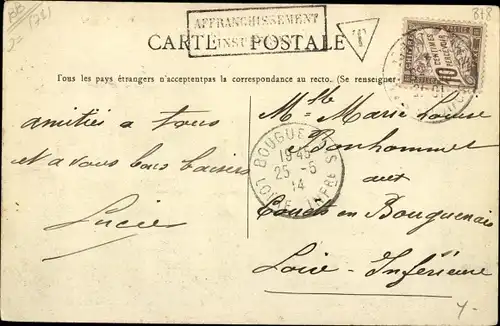 AFFRANCHISSEMENT
CARTE POSTALE
T
10
Tous les pays étrangers n'acceptent pas la correspondance au recto. (Se renseigner
Mlle Marie Louise
Bonhommet
aux
Couëts en Bouguenais
Loire-Inférieure
amitiés a tous
et a vous bons baisers
Lucie
19 45
25 - 5
14
LOIRE INFRE
878